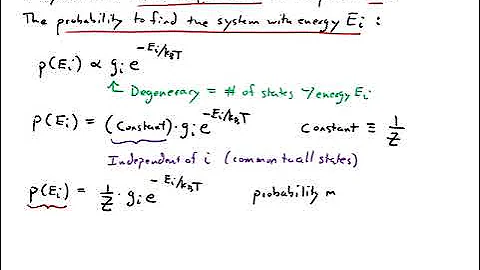 The probability to find the system with energy Ei :
p(Ei) ∝ gi e^-Ei/kBT
Degeneracy = # of states w/ energy Ei
p(Ei) = (Constant) · gi e^-Ei/kBT Constant ≡ 1/Z
Independent of i (common to all states)
p(Ei) = 1/Z · gi e^-Ei/kBT probability m